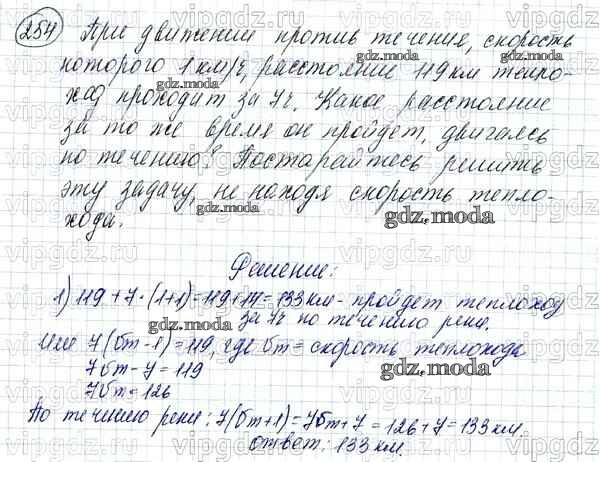 254 При движении против течения, скорость
которого 1 км/ч, расстояние 119 км тепло-
ход проходит за 7ч. Какое расстояние
за то же время он пройдет, двигаясь
по течению? Постарайтесь решить
эту задачу, не находя скорость тепло-
хода.
Решение:
1) 119 + 7 · (1+1) = 119+14 = 133 км - пройдет теплоход
за 7ч по течению реки.
Или 7(бт - 1) = 119, где бт = скорость теплохода
7бт - 7 = 119
7бт = 126
По течению реки: 7(бт+1) = 7бт + 7 = 126 + 7 = 133 км.
ответ: 133 км.
gdz.moda
vipgdz.ru